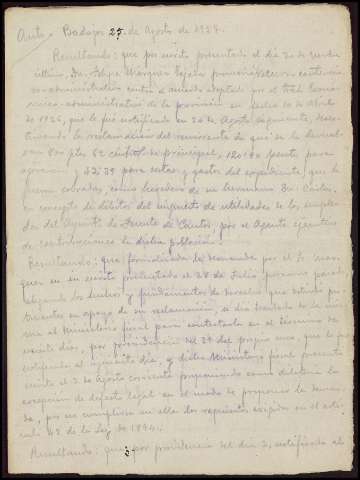 Auto. Badajoz 25 de Agosto de 1927.
Resultando: que por escrito presentado el día 20 de
último, Dn. Felipe Márquez Tejada
so-administrativo contra el acuerdo adoptado por el Trbl. Econó-
mico-administrativo de la provincia en fecha 10 de Abril
de 1926, que le fué notificado en 20 de Agosto siguiente, deses-
timando la reclamación del recurrente de que se le devuel-
van ptas. de principal, por
apremio y 32'39 por costas y gastos del expediente que le
fueron cobradas, como heredero de su hermano Dn. Carlos,
en concepto de débitos del impuesto de utilidades de los emplea-
dos del Ayunt.º de Fuente de Cantos, por el Agente ejecutivo
de contribuciones de dicha población.
Resultando: que formalizada la demanda por el Sr. Már-
quez en su escrito presentado el 28 de Julio próximo pasado,
alegando los hechos y fundamentos de derecho que estimó per-
tinentes en apoyo de su reclamación, se dió traslado de la mis-
ma al Ministerio fiscal para contestarla en el término de
veinte días, por providencia del 29 del propio mes, que le fué
notificada al siguiente día, y dicho Ministerio fiscal presentó
escrito el 2 de Agosto corriente proponiendo como dilatoria la
excepción de defecto legal en el modo de proponer la deman-
da, por no cumplirse en ella los requisitos exigidos en el artí-
culo 42 de la Ley de 1894.
Resultando: que por providencia del día 3, notificada al